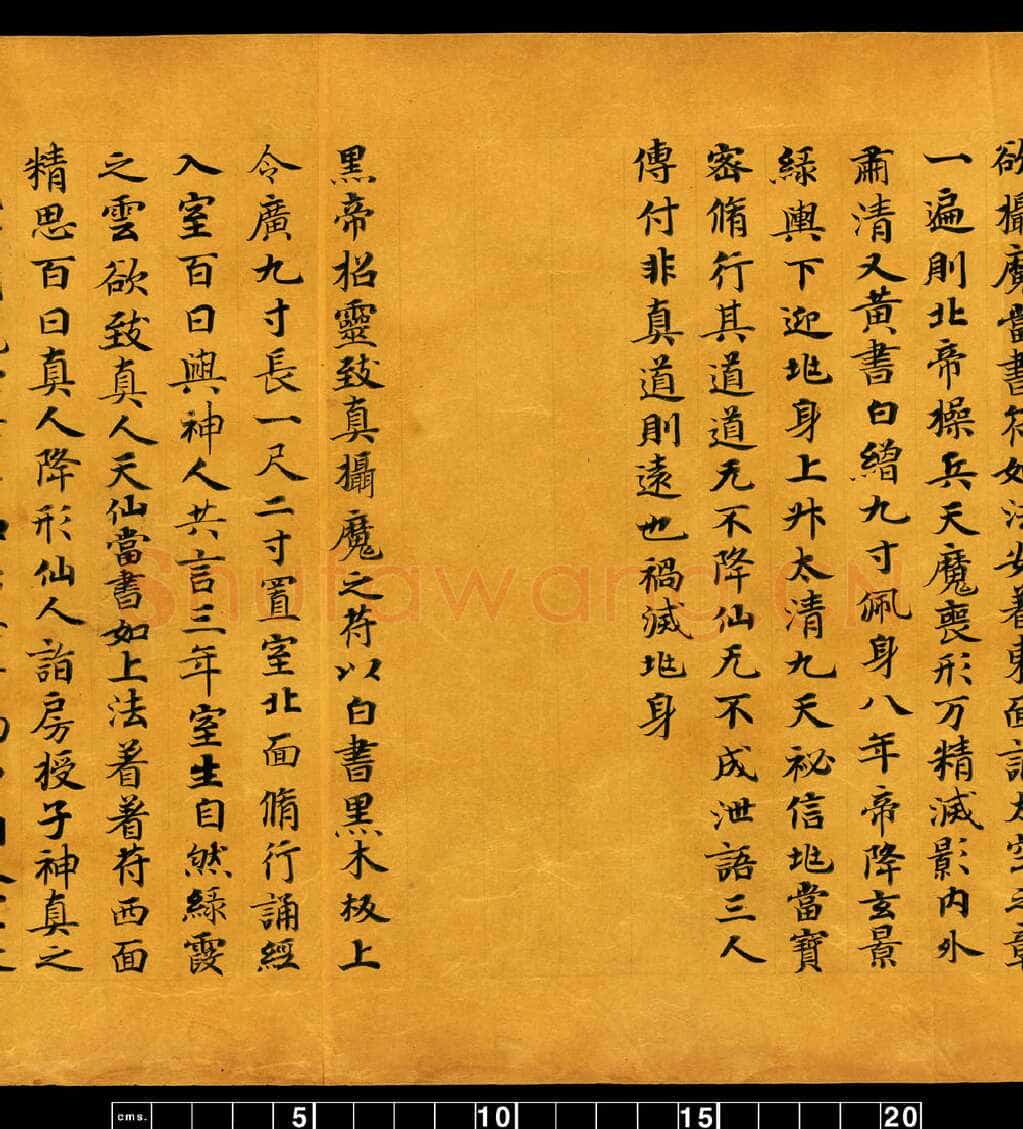 欲攝魔當書符如法安著東面誦太空之章
一遍則北帝操兵天魔喪形万精滅影內外
肅清又黃書白繒九寸佩身八年帝降玄景
緑輿下迎兆身上升太清九天祕信兆當寶
密脩行其道道无不降仙无不成泄語三人
傳付非真道則遠也禍滅兆身
黑帝招靈致真攝魔之苻以白書黑木板上
令廣九寸長一尺二寸置室北面脩行誦經
入室百日與神人共言三年室生自然緑霞
之雲欲致真人天仙當書如上法着着苻西面
精思百日真人降形仙人詣房授子神真之
Shufawang.CN
cms. 5 10 15 20